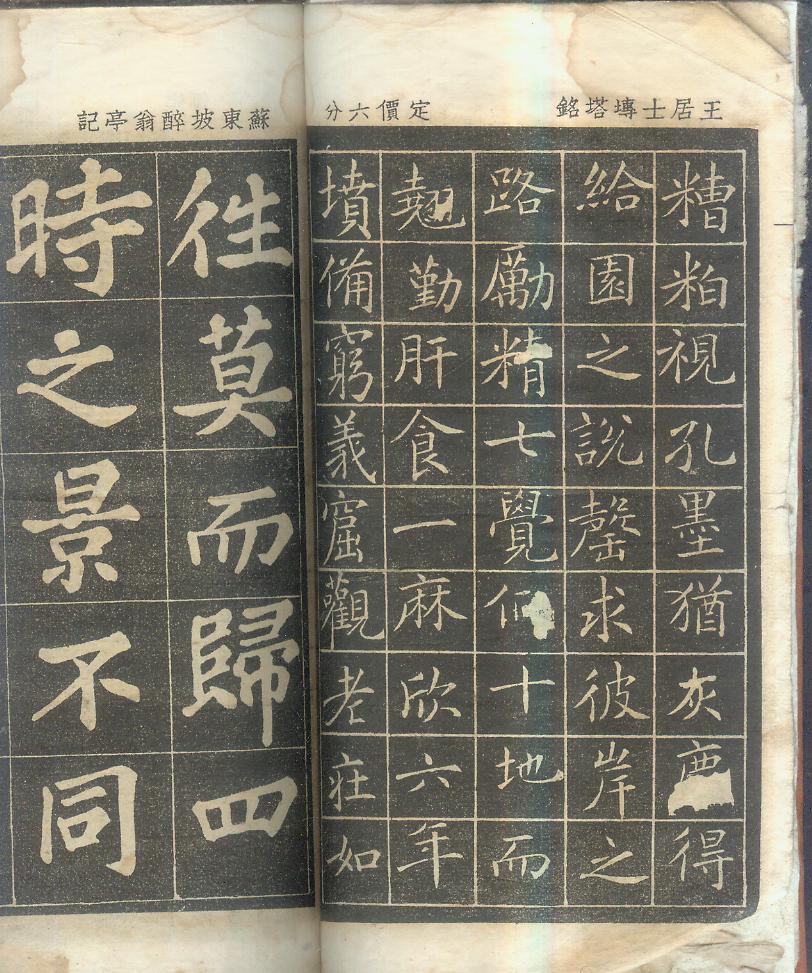 王居士塼塔銘
定價六分
糟粕視孔墨猶灰得
給園之說罄求彼岸之
路勵精七覺十地而
翹勤肝食一麻欣六年
墳備窮義窟觀老莊如
蘇東坡醉翁亭記
徃莫而歸四
時之景不同